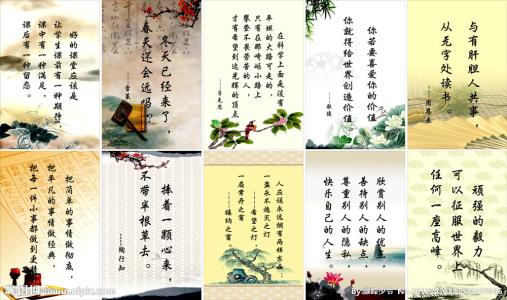 好的课堂应该是
让学生课前有一种期待,
课中有一种满足,
课后有一种留恋。
冬天已经来了,
春天还会远吗?
——雪莱
在科学上面是没有
平坦的大路可走的,
只有在那崎岖小路上
攀登不畏劳苦的人,
才有希望到达光辉的顶点
——马克思
你若要喜爱你的价值
你就得给世界创造价值
——歌德
与有肝胆人共事,
从无字处读书。
——周恩来
把简单的事情做彻底,
把平凡的事情做经典,
把每一件小事都做到更
捧着一颗心来,
不带半根草去。
——陶行知
人应该永远拥有两样东西:
一盏永不熄灭之灯
——希望之灯
一扇常开之窗
——接纳之窗。
欣赏别人的优点,
善待别人的缺点,
尊重别人的隐私,
快乐自己的人生。
顽强的毅力
可以征服世界上
任何一座高峰。
www.nipic.com